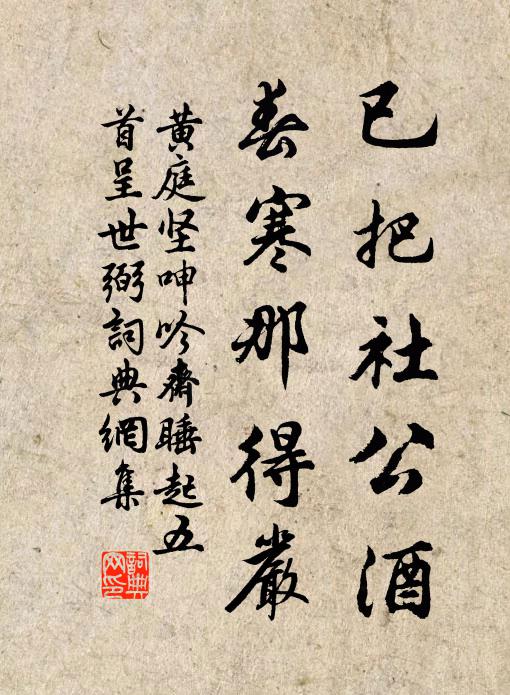 已把社公酒
春寒那得嚴
黄庭坚呻吟齋睡起五
首呈世弼詞典網集
詞典
网印